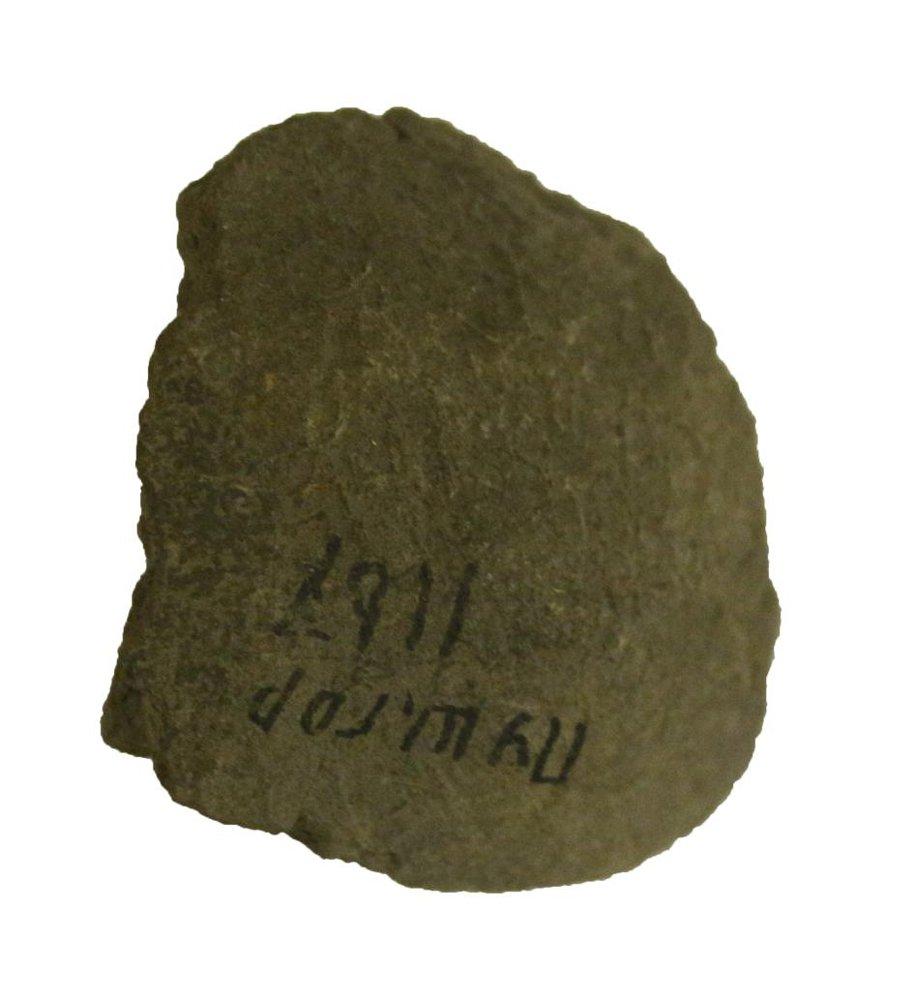 Пуш.гор
1187